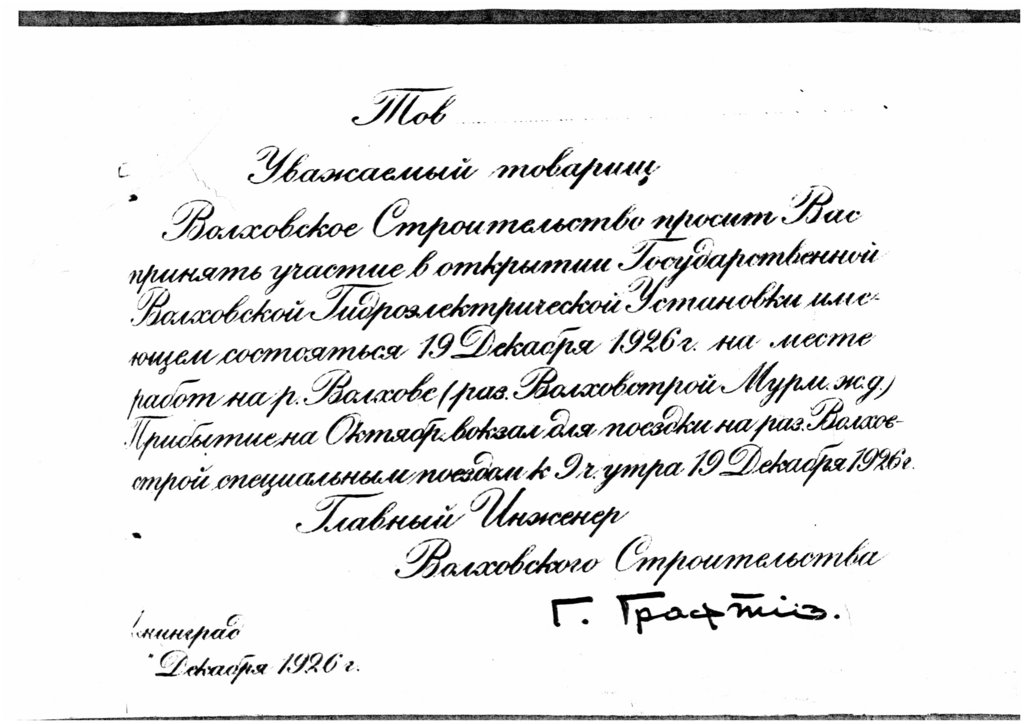 Тов
Уважаемый товарищ
Волховское Строительство просит Вас
принять участие в открытии Государственной
Волховской Гидроэлектрической Установки име-
ющем состояться 19 Декабря 1926 г. на месте
работ на р. Волхове (раз. Волховстрой Мурм. ж.д.)
Прибытие на Октябр. вокзал для поездки на раз. Волхов-
строй специальным поездом к 9 ч. утра 19 Декабря 1926 г.
Главный Инженер
Волховского Строительства
Г. Графтіо.
нинград
Декабря 1926 г.